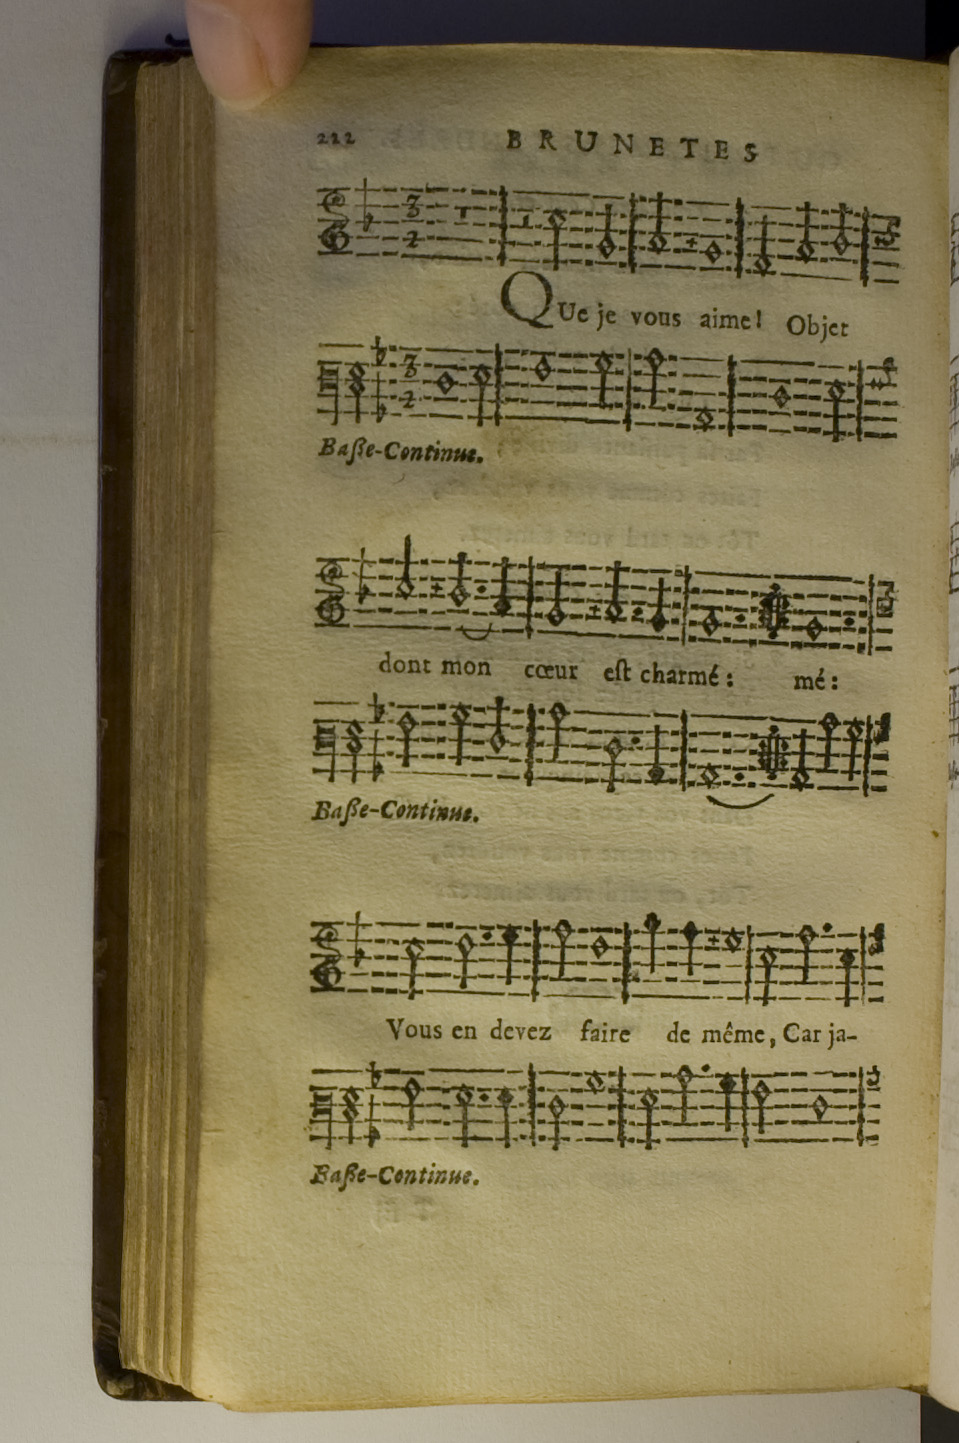 222 BRUNETES
3
2
QUe je vous aime! Objet
3
2
Baſſe-Continue.
dont mon cœur eſt charmé: mé:
Baſſe-Continue.
Vous en devez faire de même, Car ja-
Baſſe-Continue.